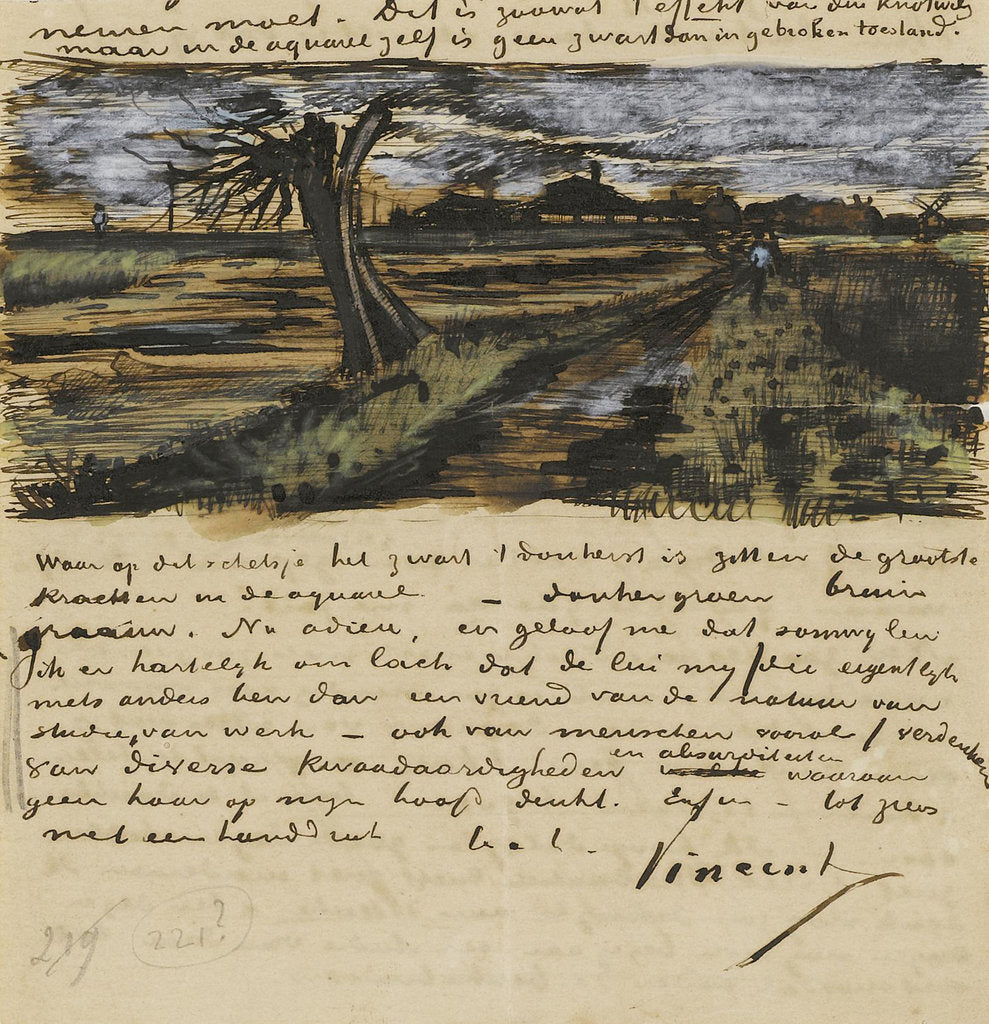 nemen moet. Dit is zoowat 't effekt van den knotwilg
maar in de aquarel zelf is geen zwart dan in gebroken toestand.
Waar op dit schetsje het zwart 't donkerst is zitten de grootste
krachten in de aquarel – donkergroen bruin
graauw. Nu adieu, en geloof me dat somwylen
ik er hartelyk om lach dat de lui my /die eigentlyk
niets anders ben dan een vriend van de natuur van
studie, van werk – ook van menschen vooral/ verdenken
en absurditeiten
van diverse kwaadaardigheden waaraan
geen haar op myn hoofd denkt. Enfin – tot ziens
met een handdruk
Vincent
219 221?